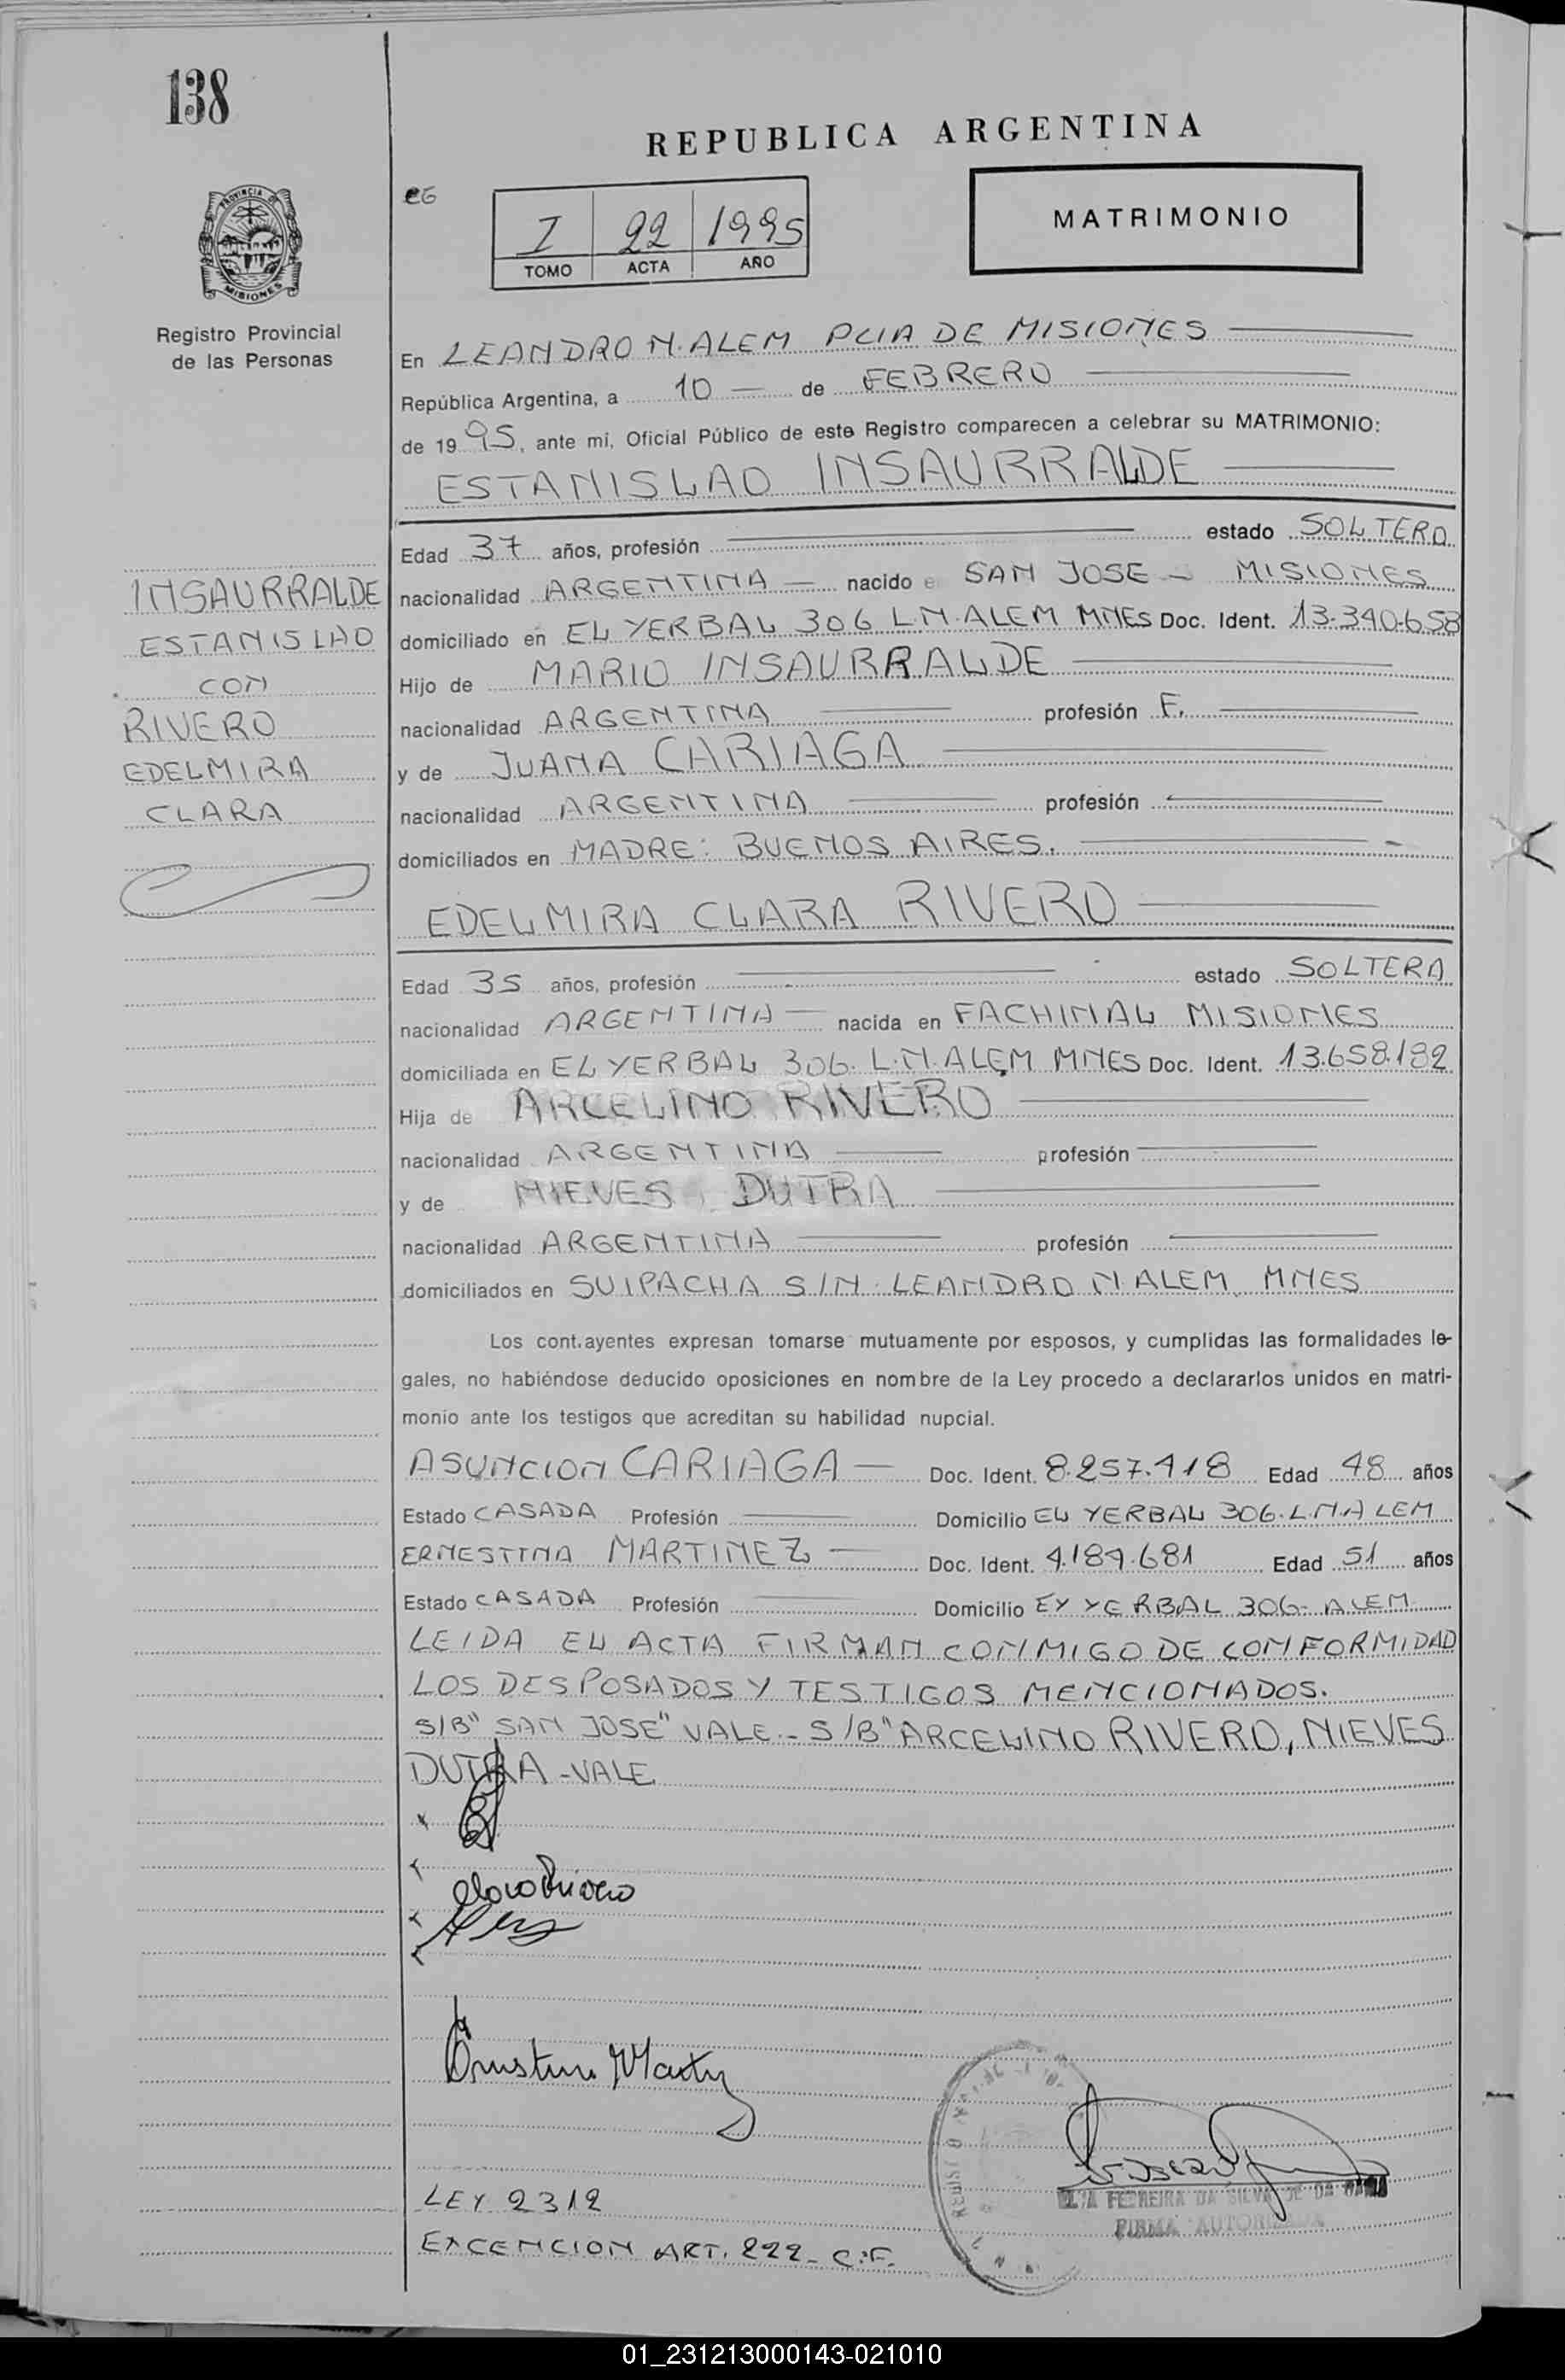 138
REPUBLICA ARGENTINA
PROVINCIA DE
MISIONES
Registro Provincial
de las Personas
I 22 1995
TOMO ACTA AÑO
MATRIMONIO
En LEANDRO N. ALEM PCIA DE MISIONES
República Argentina, a 10 de FEBRERO
de 1995, ante mi, Oficial Público de este Registro comparecen a celebrar su MATRIMONIO:
ESTANISLAO INSAURRALDE
Edad 37 años, profesión estado SOLTERO
nacionalidad ARGENTINA nacido e SAN JOSE - MISIONES
domiciliado en EL YERBAL 306 L.N.ALEM MNES Doc. Ident. 13.340.658
Hijo de MARIO INSAURRALDE
nacionalidad ARGENTINA profesión F.
y de JUANA CARIAGA
nacionalidad ARGENTINA profesión
domiciliados en MADRE: BUENOS AIRES.
INSAURRALDE
ESTANISLAO
CON
RIVERO
EDELMIRA
CLARA
EDELMIRA CLARA RIVERO
Edad 35 años, profesión estado SOLTERA
nacionalidad ARGENTINA nacida en FACHINAL MISIONES
domiciliada en EL YERBAL 306. L.N.ALEM MNES Doc. Ident. 13.658.182
Hija de ARCELINO RIVERO
nacionalidad ARGENTINA profesión
y de NIEVES DUTRA
nacionalidad ARGENTINA profesión
domiciliados en SUIPACHA S/N. LEANDRO N ALEM MNES
Los cont.ayentes expresan tomarse mutuamente por esposos, y cumplidas las formalidades le-
gales, no habiéndose deducido oposiciones en nombre de la Ley procedo a declararlos unidos en matri-
monio ante los testigos que acreditan su habilidad nupcial.
ASUNCION CARIAGA Doc. Ident. 8.257.418 Edad 48 años
Estado CASADA Profesión Domicilio EL YERBAL 306. L.N.ALEM
ERNESTINA MARTINEZ Doc. Ident. 4.189.681 Edad 51 años
Estado CASADA Profesión Domicilio EY YERBAL 306- ALEM
LEIDA EL ACTA FIRMAN CONMIGO DE CONFORMIDAD
LOS DESPOSADOS Y TESTIGOS MENCIONADOS.
S/B" SAN JOSE" VALE.- S/B" ARCELINO RIVERO, NIEVES
DUTRA -VALE
LEY 2312
FERREIRA DA SILVA DE DA
FIRMA AUTORIZADA
EXCENCION ART. 222- C.F.
01_231213000143-021010